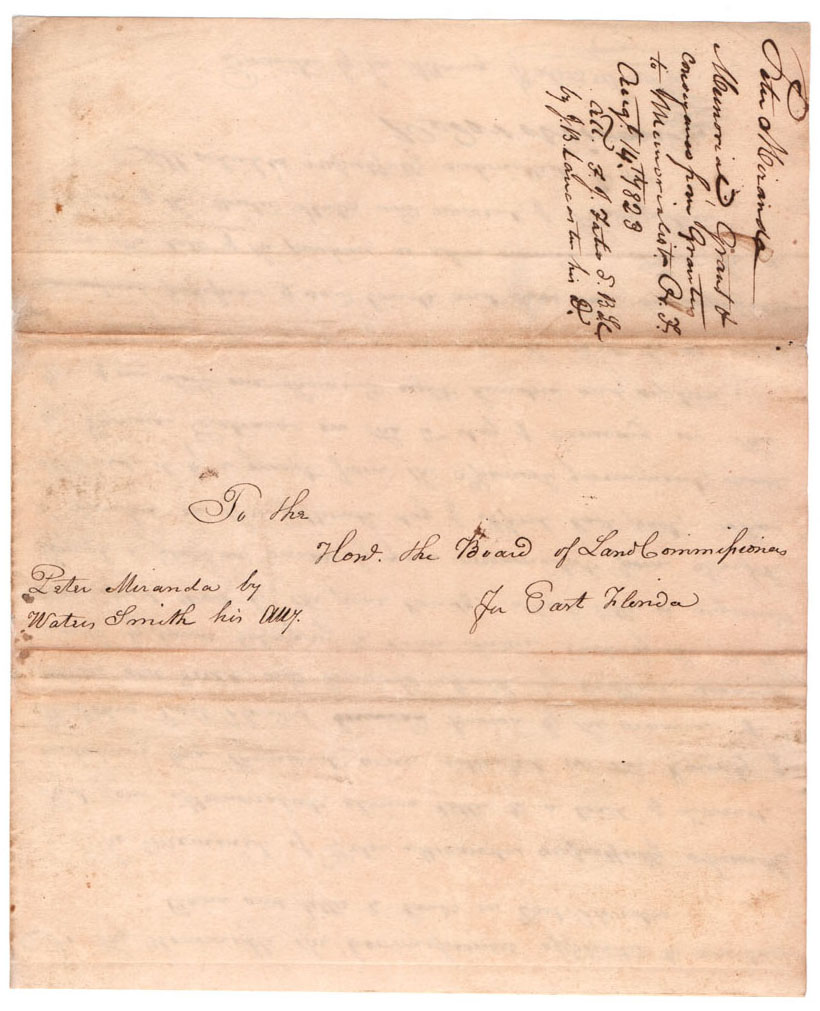 Peter Miranda
Memorial Grant &
conveyance from Grantee
to Memorialist
Augt. 14th 1823
Att. F. J. Fatio S. B. L. C.
by J. B. Lancaster his D.
To the
Honl. the Board of Land Commissioners
for East Florida
Peter Miranda by
Waters Smith his Atty.